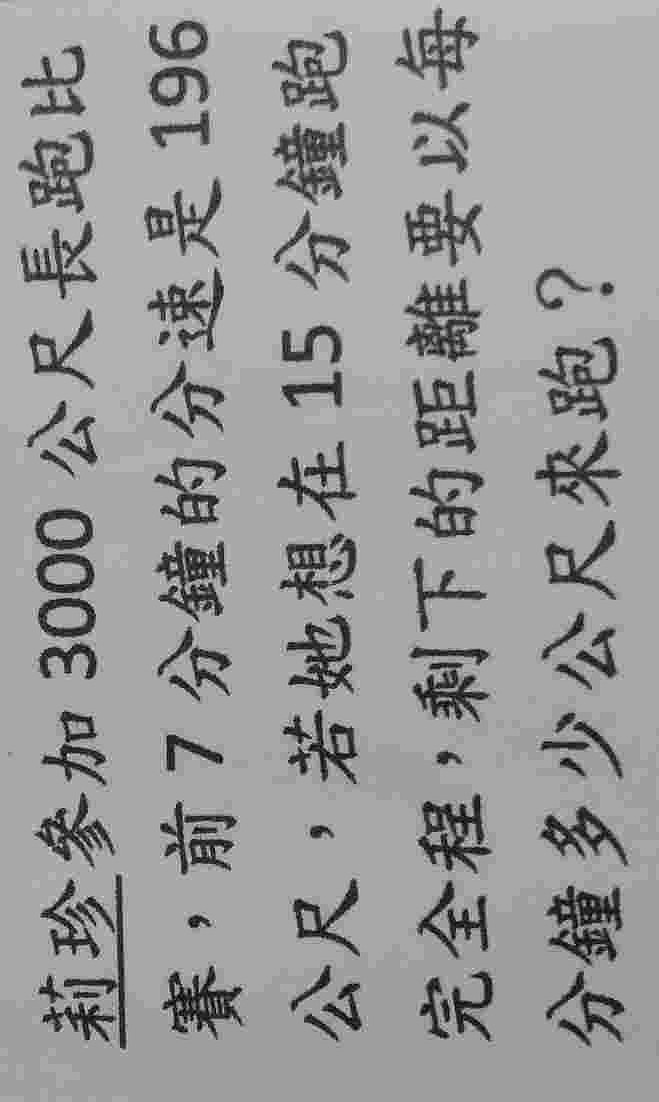 莉珍參加 3000 公尺長跑比
賽，前 7 分鐘的分速是 196
公尺，若她想在 15 分鐘跑
完全程，剩下的距離要以每
分鐘多少公尺來跑？